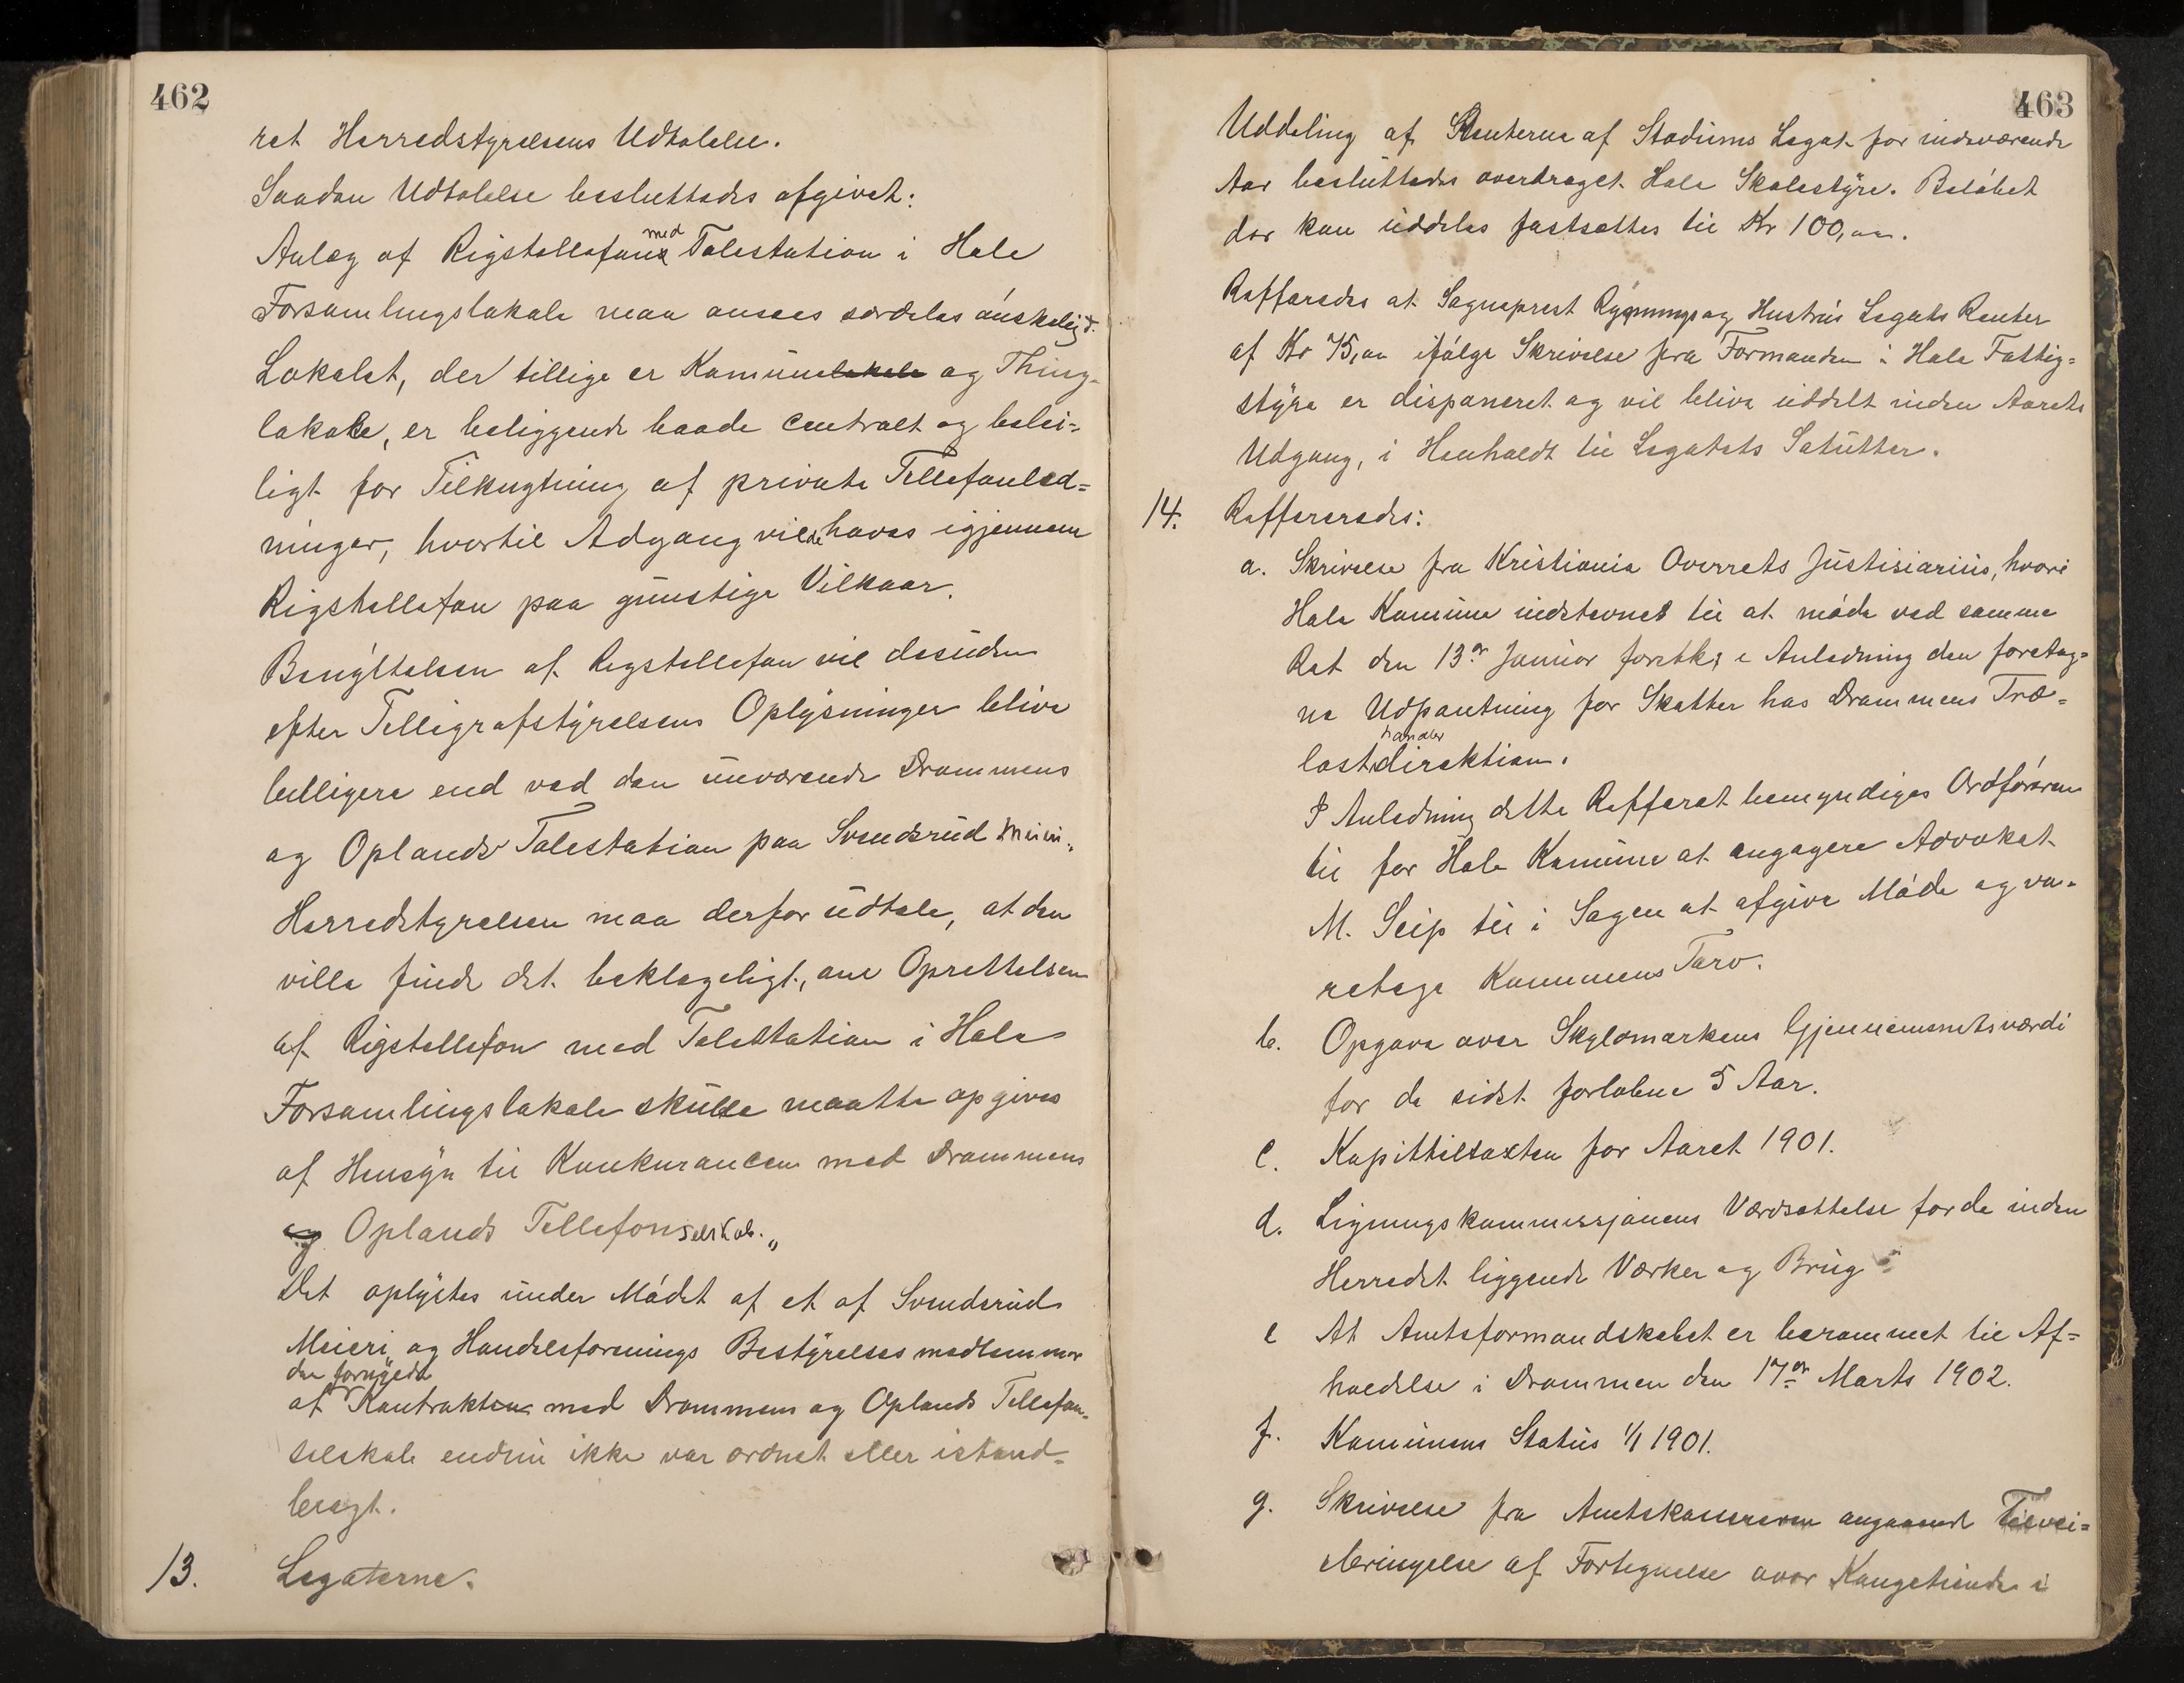 462
ret Herredstyrelsens Udtalelse.
Saadan Udtalelse besluttedes afgivet:
Anlæg af Rigstellefon med Talestation i Hole
Forsamlingslokale maa ansees særdeles ønskeligt.
Lokalet, der tillige er Kommunelokale og Thing-
lokale, er beliggende baade centralt og belei-
ligt for Tilknytning af private Tellefonled=
ninger, hvortil Adgang vilde haves igjennem
Rigstellefon paa gunstige Vilkaar.
Benyttelsen af Rigstellefon vil desuden
efter Telligrafstyrelsens Oplysninger blive
billigere end ved den nuværende Drammens
og Oplands Talestation paa Svendsrud
Herredstyrelsen maa derfor udtale, at den
ville finde det beklageligt, om Oprettelsen
af Rigstellefon med Talestation i Hole
Forsamlingslokale skulle maatte opgives
af Hensyn til Konkurancen med Drammens
og Oplands Tellefonselskab. „
Det oplystes under Mødet af et af Svendsrud
Meieri og Handelsforenings Bestyrelsesmedlemmer
den fornyede
at Kontrakten med Drammens og Oplands Tellefon-
selskab endnu ikke var ordnet eller istand-
bragt.
13. Legaterne.
463
Uddeling af Renterne af Stadiums Legat for indeværende
Aar besluttedes overdraget Hole Skolestyre. Beløbet
der kan uddeles fastsættes til Kr 100,00.
Refferedes at Sogneprest og Hustrus Legats Renter
af Kr 75,00 ifølge Skrivelse fra Formanden i Hole Fattig=
styre er disponeret og vil blive uddelt inden Aarets
Udgang, i Henholdt til Legatets Satutter.
14. Reffereredes:
a. Skrivelse fra Kristiania Overrets Justisiarius, hvori
Hole Komune indstevnes til at møde ved samme
Ret den 13de Januar i Anledning den foretag=
ne Udpantning for Skatter hos Drammens Træ=
handler
lastdirektion.
I Anledning dette Refferat bemyndiges Ordføreren
til for Hole Komune at engagere Advokat
M. Seip til i Sagen at afgive Møde og va-
retage Kommunens Tarv.
b. Opgave over Skylomarkens Gjennemsnitsværdi
for de sidst forløbne 5 Aar.
c. Kapitteltaxten for Aaret 1901.
d. Ligningskommissjonens Værdsættelse for de inden
Herredet liggende Værker og Brug
e At Amtsformandskabet er berammet til Af=
holdelse i Drammen den 17de Marts 1902.
f. Komunens Status 1/1 1901.
g. Skrivelse fra Amtskassereren angaaende Tilvei=
ebringelse af Fortegnelse over Kongetiende i